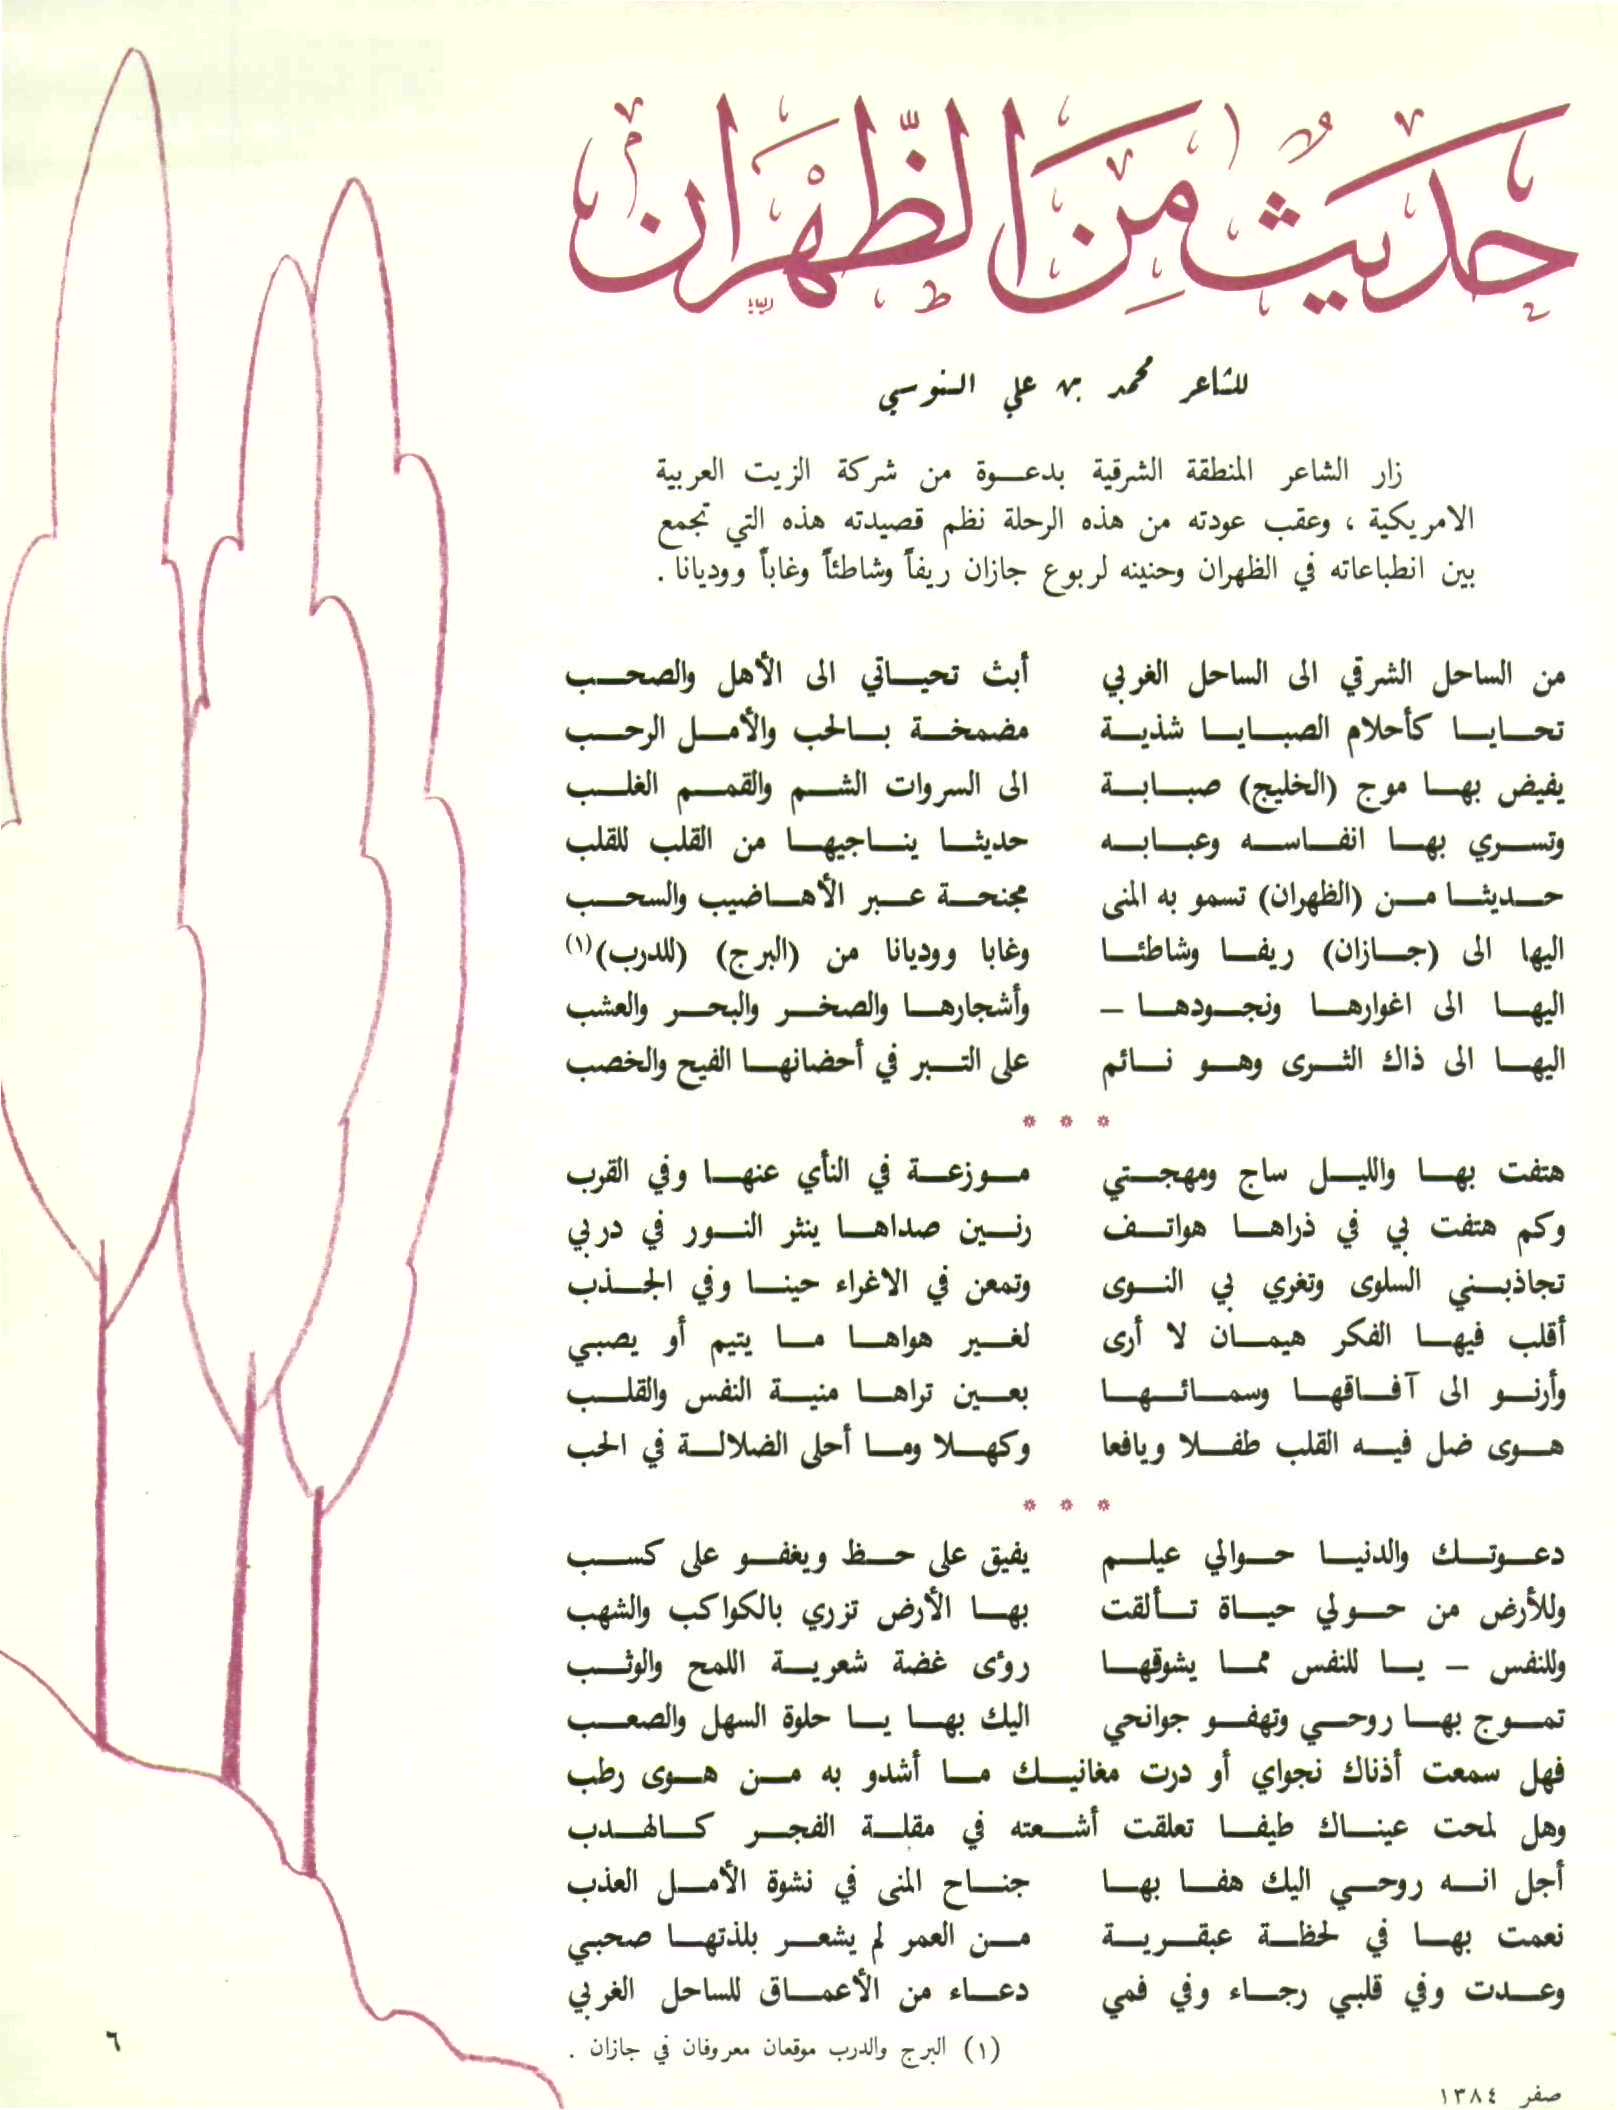 حَدِيثٌ مِنَ الظَّهْرَان
للشاعر محمد بن علي السنوسي
زار الشاعر المنطقة الشرقية بدعـوة من شركة الزيت العربية
الامريكية ، وعقب عودته من هذه الرحلة نظم قصيدته هذه التي تجمع
بين انطباعاته في الظهران وحنينه لربوع جازان ريفاً وشاطئاً وغاباً ووديانا .
من الساحل الشرقي الى الساحل الغربي أبث تحياتي الى الأهل والصحب
تحايا كأحلام الصبايا شذية مضمخة بالحب والأمل الرحب
يفيض بها موج (الخليج) صبابة الى السروات الشم والقمم الغلب
وتسري بها انفاسه وعبابه حديثا يناجيها من القلب للقلب
حديثا من (الظهران) تسمو به المنى مجنحة عبر الأهاضيب والسحب
اليها الى (جازان) ريفا وشاطئا وغابا ووديانا من (البرج) (للدرب)(١)
اليها الى اغوارها ونجودها – وأشجارها والصخر والبحر والعشب
اليها الى ذاك الثرى وهو نائم على التبر في أحضانها الفيح والخصب
* * *
هتفت بها والليل ساج ومهجتي موزعة في النأي عنها وفي القرب
وكم هتفت بي في ذراها هواتف رنين صداها ينثر النور في دربي
تجاذبني السلوى وتغري بي النوى وتمعن في الاغراء حينا وفي الجذب
أقلب فيها الفكر هيمان لا أرى لغير هواها ما يتيم أو يصبي
وأرنو الى آفاقها وسمائها بعين تراها منية النفس والقلب
هوى ضل فيه القلب طفلا ويافعا وكهلا وما أحلى الضلالة في الحب
* * *
دعوتك والدنيا حوالي عيلم يفيق على حظ ويغفو على كسب
وللأرض من حولي حياة تألقت بها الأرض تزري بالكواكب والشهب
وللنفس – يا للنفس مما يشوقها رؤى غضة شعرية اللمح والوثب
تموج بها روحي وتهفو جوانحي اليك بها يا حلوة السهل والصعب
فهل سمعت أذناك نجواي أو درت مغانيك ما أشدو به من هوى رطب
وهل لمحت عيناك طيفا تعلقت أشعته في مقلة الفجر كالهدب
أجل انه روحي اليك هفا بها جناح المنى في نشوة الأمل العذب
نعمت بها في لحظة عبقرية من العمر لم يشعر بلذتها صحبي
وعدت وفي قلبي رجاء وفي فمي دعاء من الأعماق للساحل الغربي
(١) البرج والدرب موقعان معروفان في جازان .
٦
صفر ١٣٨٤